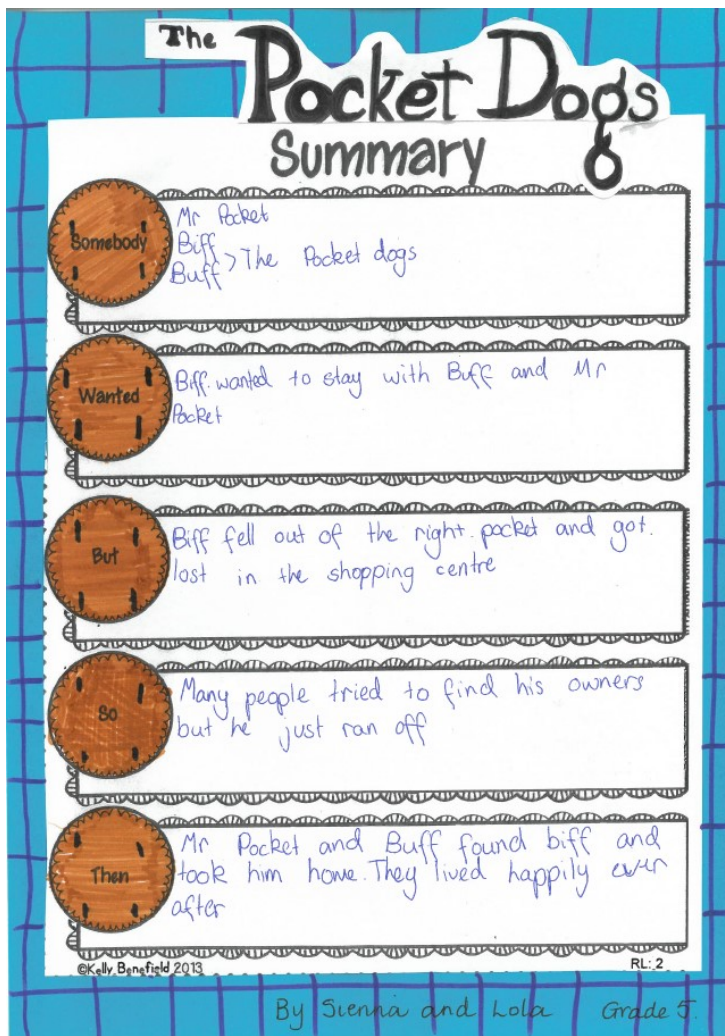 The
Pocket Dogs
Summary
Somebody
Mr Pocket
Biff
Buff > The Pocket dogs
Wanted
Biff. wanted to stay with Buff and Mr
Pocket
But
Biff fell out of the right pocket and got.
lost in the shopping centre
So
Many people tried to find his owners
but he just ran off
Then
Mr Pocket and Buff found biff and
took him home. They lived happily ever
after
©Kelly Benefield 2013
RL: 2
By Sienna and Lola Grade 5.